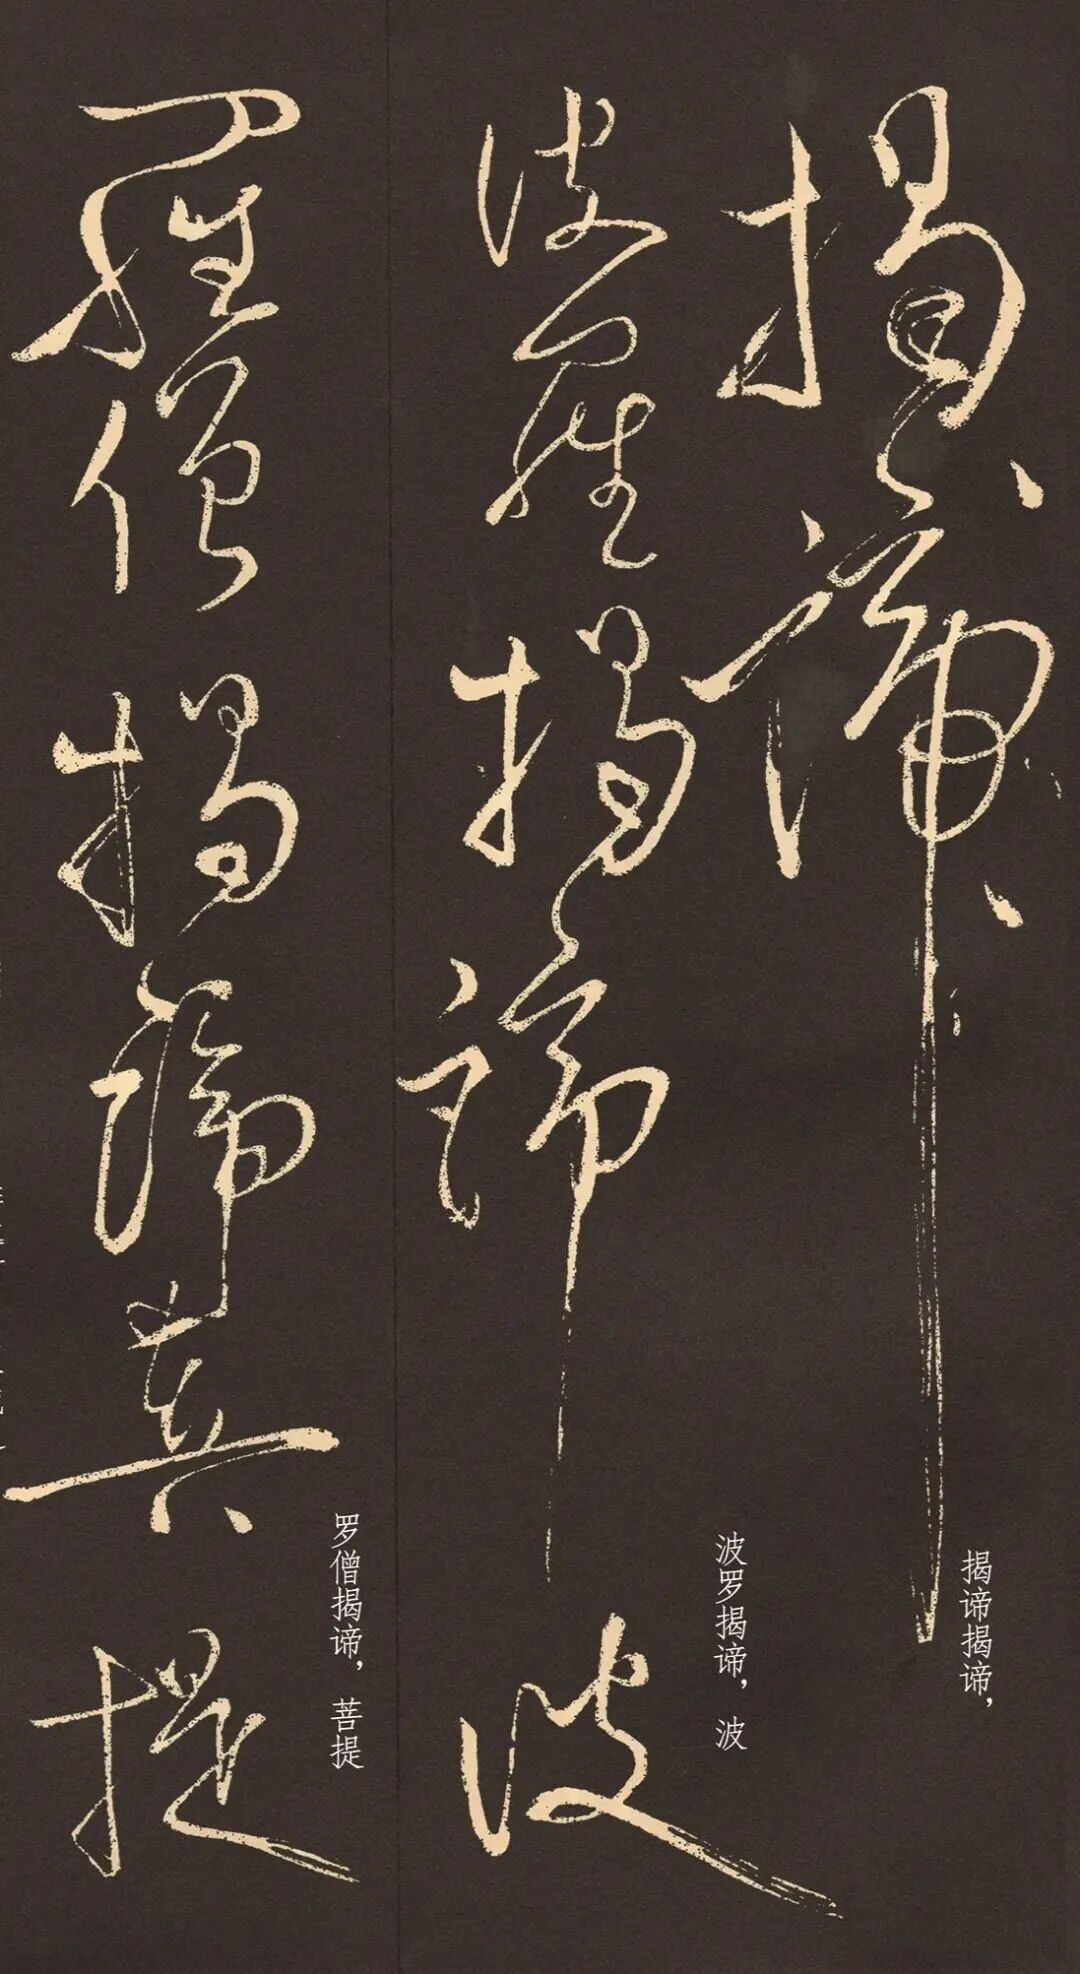 揭、諦、
揭谛揭谛，
波羅揭諦波
波罗揭谛，波
羅僧揭諦菩提
罗僧揭谛，菩提